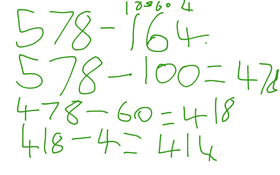 100 60 4
578 - 164.
578 - 100 = 478
478 - 60 = 418
418 - 4 = 414